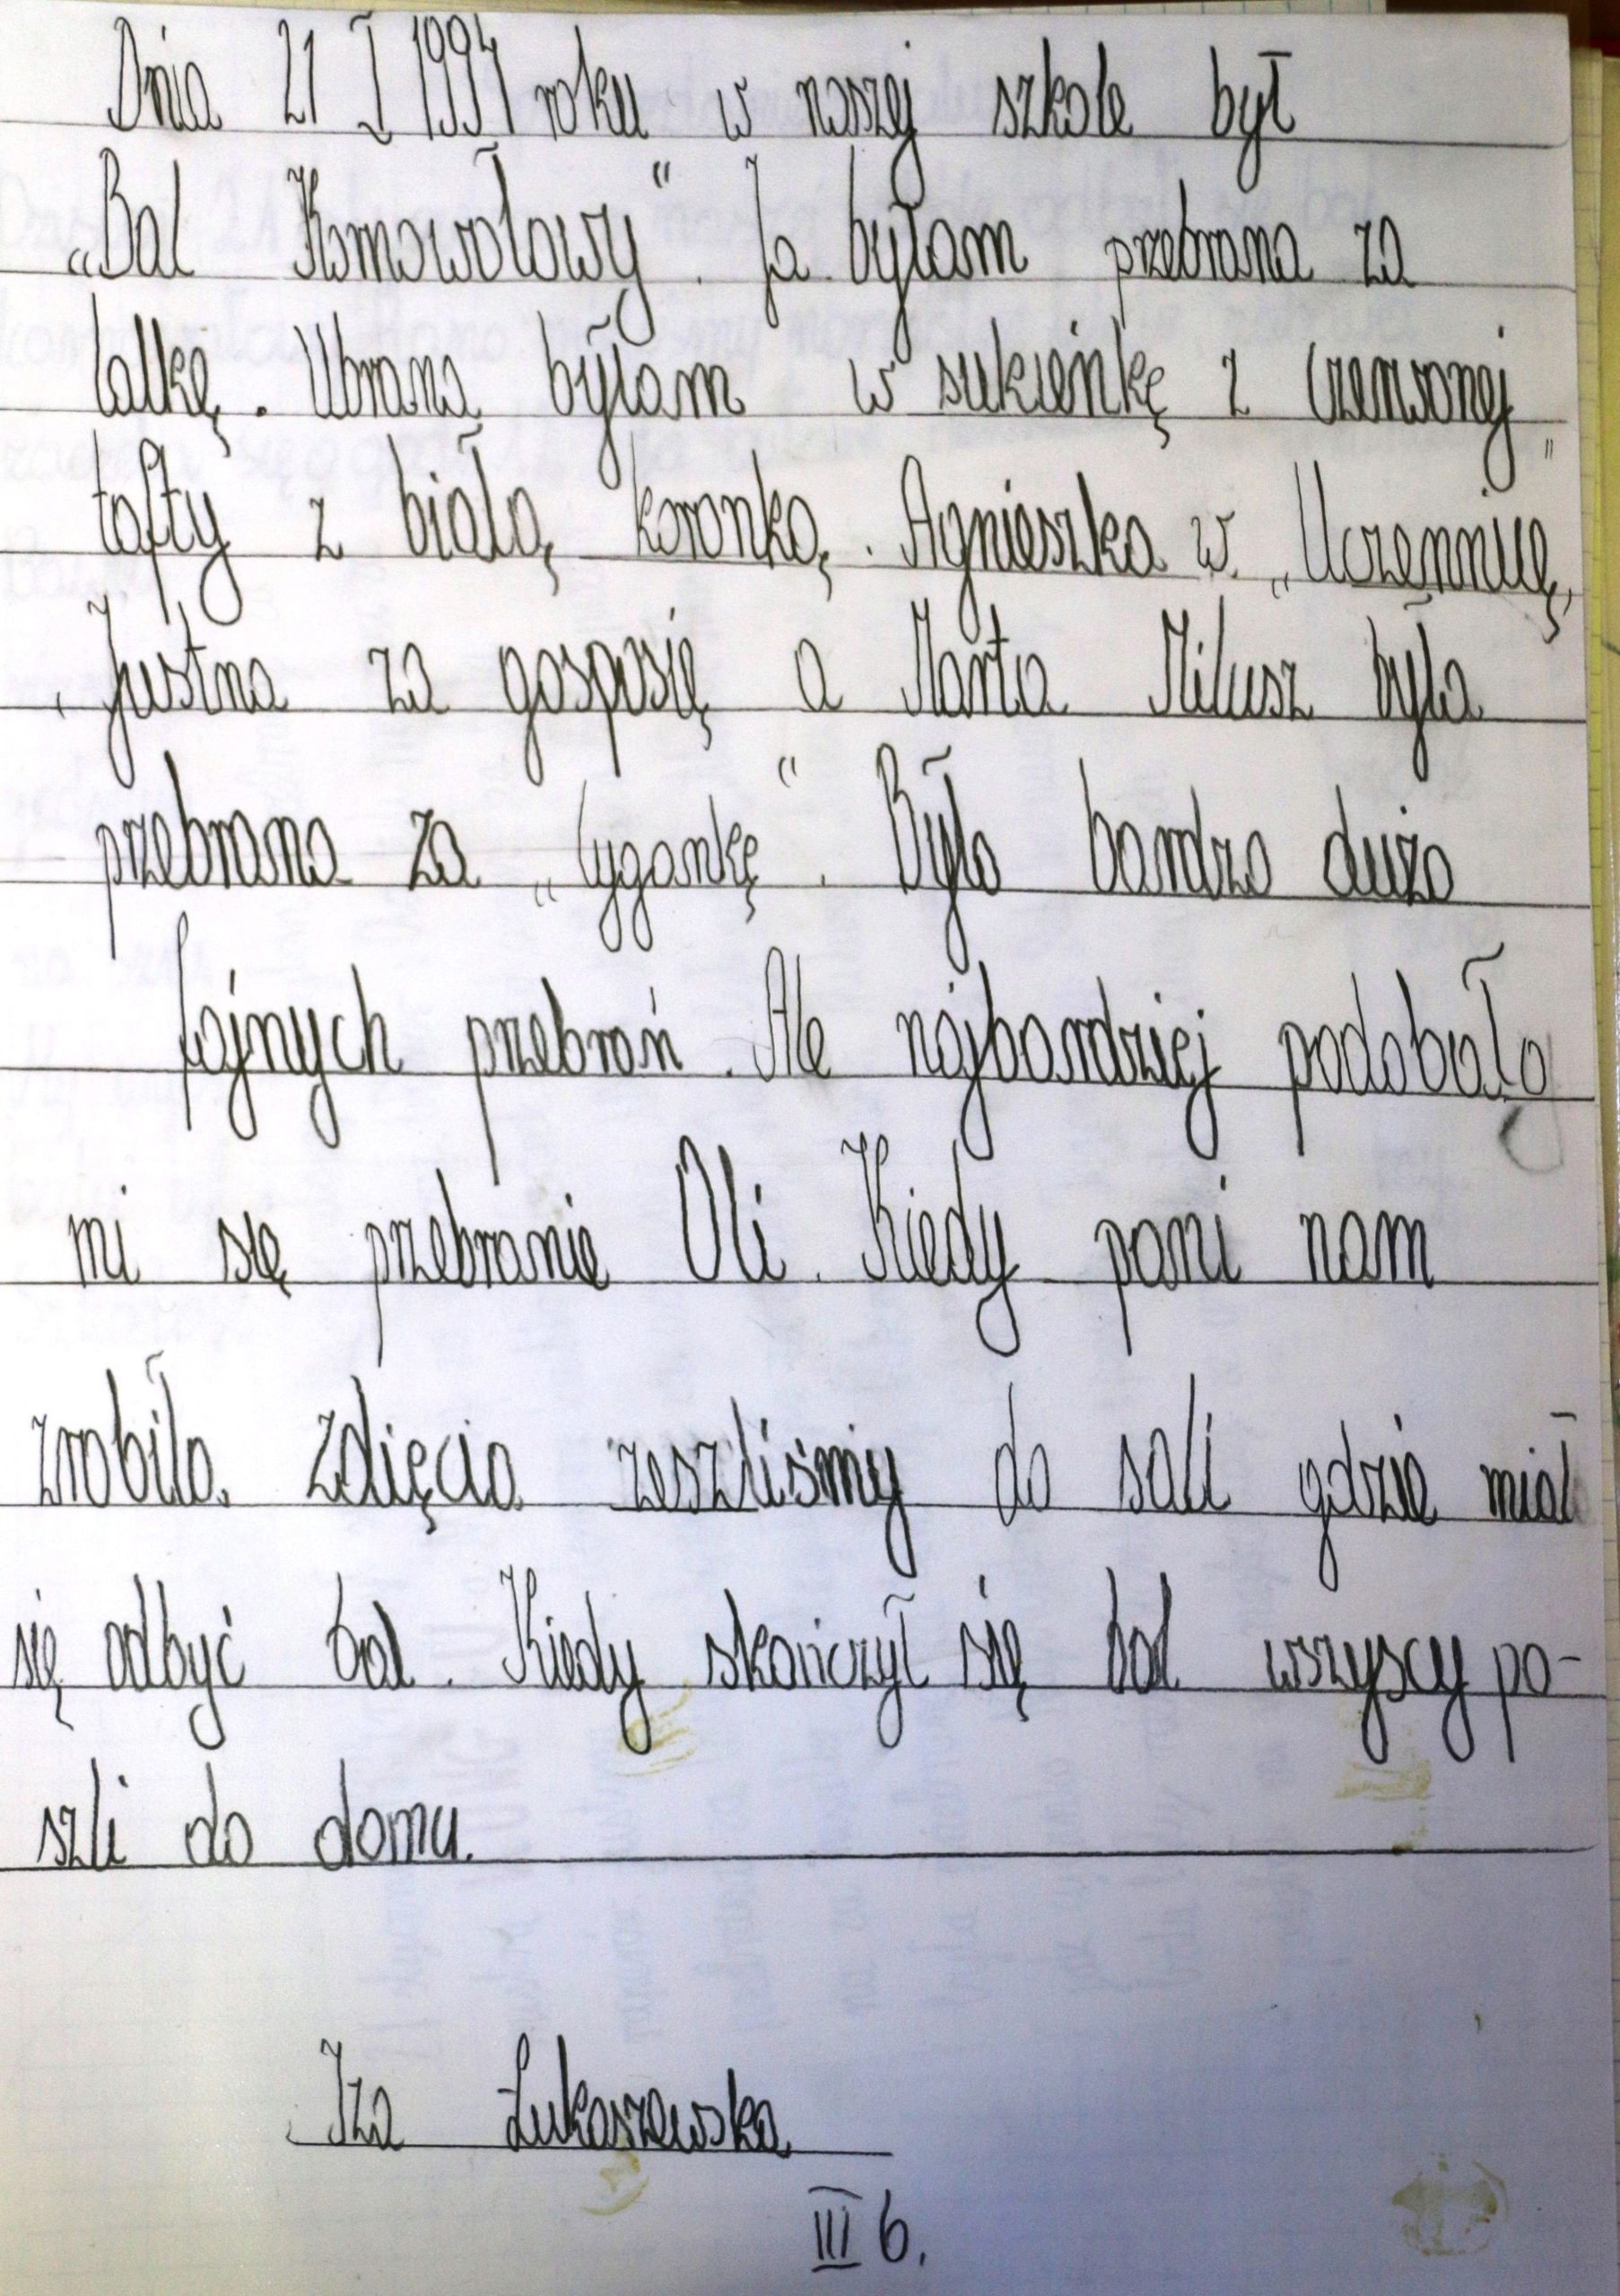 Dnia 21 I 1994 roku w naszej szkole był
„Bal Karnawałowy". Ja byłam przebrana za
lalkę. Ubrana byłam w sukienkę z czerwonej
tafty z białą koronką. Agnieszka w „Uczennicę"
, Justna za gosposię a Marta Milusz była
przebrana za „Cygankę". Było bardzo dużo
fajnych przebrań. Ale najbardziej podobało
mi się przebranie Oli. Kiedy pani nam
zrobiła zdięcia zeszliśmy do sali gdzie miał
się odbyć bal. Kiedy skończył się bal wszyscy po-
szli do domu.
Iza Łukaszewska
III b.